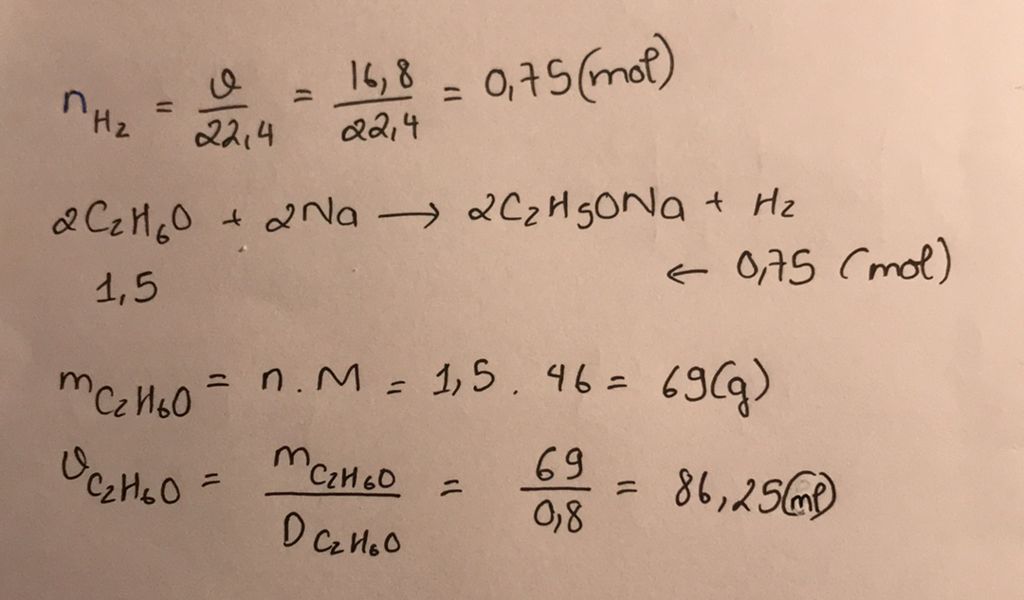 n_H2 = V/22,4 = 16,8/22,4 = 0,75(mol)
2C2H6O + 2Na → 2C2H5ONa + H2
1,5 ← 0,75 (mol)
m_C2H6O = n.M = 1,5 . 46 = 69(g)
V_C2H6O = m_C2H6O/D_C2H6O = 69/0,8 = 86,25(ml)